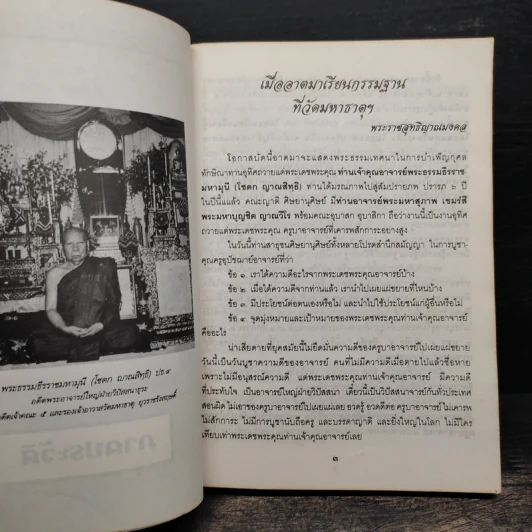 พระธรรมธีรราชมหามุนี (โชดก ญาณสิทฺธิ) ปธ.๙
อดีตพระอาจารย์ใหญ่ฝ่ายวิปัสสนาธุระ
อดีตเจ้าคณะ ๕ และรองเจ้าอาวาสวัดมหาธาตุ ยุวราชรังสฤษดิ์
ภาคประวัติ
เมื่ออาตมาเรียนกรรมฐาน
ที่วัดมหาธาตุฯ
พระราชสุทธิญาณมงคล
โอกาสบัดนี้อาตมาจะแสดงพระธรรมเทศนาในการบำเพ็ญกุศล
ทักษิณาทานอุทิศถวายแด่พระเดชพระคุณ ท่านเจ้าคุณอาจารย์พระธรรมธีรราช-
มหามุนี (โชดก ญาณสิทฺธิ) ท่านได้มรณภาพไปสู่สัมปรายภพ ปรารภ ๖ ปี
ในปีนี้แล้ว คณะญาติ ศิษยานุศิษย์ มีท่านอาจารย์พระมหาสุภาพ เขมรํสี
พระมหาบุญชิต ญาณวีโร พร้อมคณะอุบาสก อุบาสิกา ถือว่างานนี้เป็นงานอุทิศ
ถวายแด่พระเดชพระคุณ ครูบาอาจารย์ที่เคารพสักการะอย่างสูง
ในวันนี้ท่านสาธุชนศิษยานุศิษย์ทั้งหลายโปรดสำนึกสมัญญา ในการบูชา-
คุณครูอุปัชฌาย์อาจารย์ที่ว่า
ข้อ ๑. เราได้ความดีอะไรจากพระเดชพระคุณอาจารย์บ้าง
ข้อ ๒. เมื่อได้ความดีจากท่านแล้ว เรานำไปเผยแผ่ขยายที่ไหนบ้าง
ข้อ ๓. มีประโยชน์ต่อตนเองหรือไม่ และนำไปใช้ประโยชน์แก่ผู้อื่นหรือไม่
ข้อ ๔. จุดมุ่งหมายและเป้าหมายของพระเดชพระคุณท่านเจ้าคุณอาจารย์
คืออะไร
น่าเสียดายที่ยุคสมัยนี้ไม่ยึดมั่นความดีของครูบาอาจารย์ไปเผยแผ่ขยาย
วันนี้เป็นวันบูชาความดีของอาจารย์ คนที่ไม่มีความดีเมื่อตายไปแล้วชื่อหาย
เพราะไม่มีอนุสรณ์ความดี แต่พระเดชพระคุณท่านเจ้าคุณอาจารย์ มีความดี
ที่ประทับใจ เป็นอาจารย์ใหญ่ฝ่ายวิปัสสนา เดี๋ยวนี้เป็นวิปัสสนาจารย์กันทั่วประเทศ
สอนผิด ไม่เอาของครูบาอาจารย์ไปเผยแผ่เลย อวดรู้ อวดดีต่อ ครูบาอาจารย์ไม่เคารพ
ไม่สักการะ ไม่มีการบูชานับถือครู และบรรดาญาติ และยิ่งใหญ่ในโลก ไม่มีใคร
เทียบเท่าพระเดชพระคุณท่านเจ้าคุณอาจารย์เลย
๓